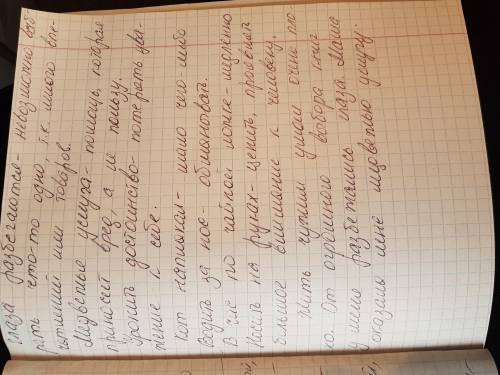 глаза разбегаются - невозможно выб-
рать что-то одно, т.к. много впе-
чатлений или товаров.
Медвежья услуга - помощь, которая
приносит вред, а не пользу.
Уронить достоинство - потерять ува-
жение к себе.
Кот наплакал - мало чего-либо
Водить за нос - обманывать.
В час по чайной ложке - медленно
Носить на руках - ценить, проявлять
большое внимание к человеку.
Жить чужим умом очень пло-
хо. От огромного выбора книг
у меня разбежались глаза. Маша
оказала мне медвежью услугу.